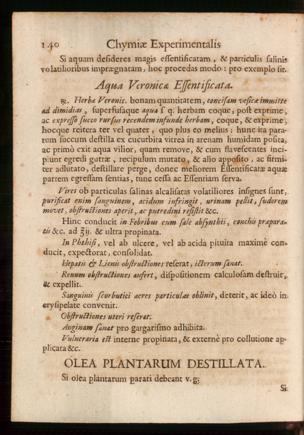 140 Chymiæ Experimentalis
Si aquam desideres magis essentificatam, & particulis salinis
volatilioribus imprægnatam, hoc procedas modo: pro exemplo sit.
Aqua Veronicæ Essentificata.
℞. Herbæ Veronic. bonam quantitatem, concisam vesicæ immitte
ad dimidias, superfusaque aqua s q. herbam coque, post exprime,
ac expresso succo rursus recendem infunde herbam, coque, & exprime,
hocque reitera ter vel quater, quo plus eo melius: hunc ita para-
rom succum destilla ex cucurbita vitrea in arenam humidam posita,
ac primò exit aqua vilior, quam remove, & cum flavescentes inci-
piunt egredi guttæ, recipulum mutato, & alio apposito, ac firmi-
ter adlutato, destillare perge, donec meliorem Essentificatæ aquæ
partem egressam sentias, tunc cessa ac Essentiam serva.
Vires ob particulas salinas alcalisatas volatiliores insignes sunt,
purificat enim sanguinem, acidum infringit, urinam pellit, sudorem
movet, obstructiones aperit, ac putredini resistit &c.
Hinc conducit in Febribus cum sale absynthii, conchis præpara-
tis &c. ad ʒij. & ultra propinata.
In Phthisi, vel ab ulcere, vel ab acida pituita maximè con-
ducit, expectorat, consolidat.
Hepatis & Lienis obstructiones reserat, icterum sanat.
Renum obstructiones aufert, dispositionem calculosam destruit,
& expellit.
Sanguinis scorbutici acres particulas oblinit, deterit, ac ideò in
erysipelate convenit.
Obstructiones uteri reserat.
Anginam sanat pro gargarismo adhibita.
Vulneraria est interne propinata, & externè pro collutione ap-
plicata &c.
OLEA PLANTARUM DESTILLATA.
Si olea plantarum parati debeant v. g:
Si